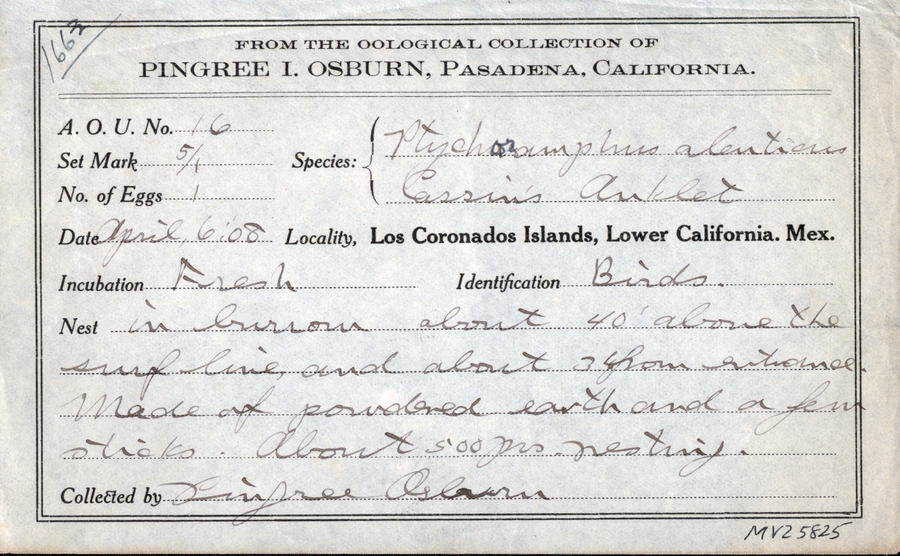 1662
FROM THE OOLOGICAL COLLECTION OF
PINGREE I. OSBURN, PASADENA, CALIFORNIA.
A. O. U. No. 16
Set Mark 5/1 Species: Ptychoramphus aleuticus
No. of Eggs 1 Cassin's Auklet
Date April, 6'08 Locality, Los Coronados Islands, Lower California. Mex.
Incubation Fresh Identification Birds.
Nest in burrow about 40' above the
surf line, and about 3' from entrance.
Made of powdered earth and a few
sticks. About 500 prs. nesting.
Collected by Pingree Osburn
MVZ 5825